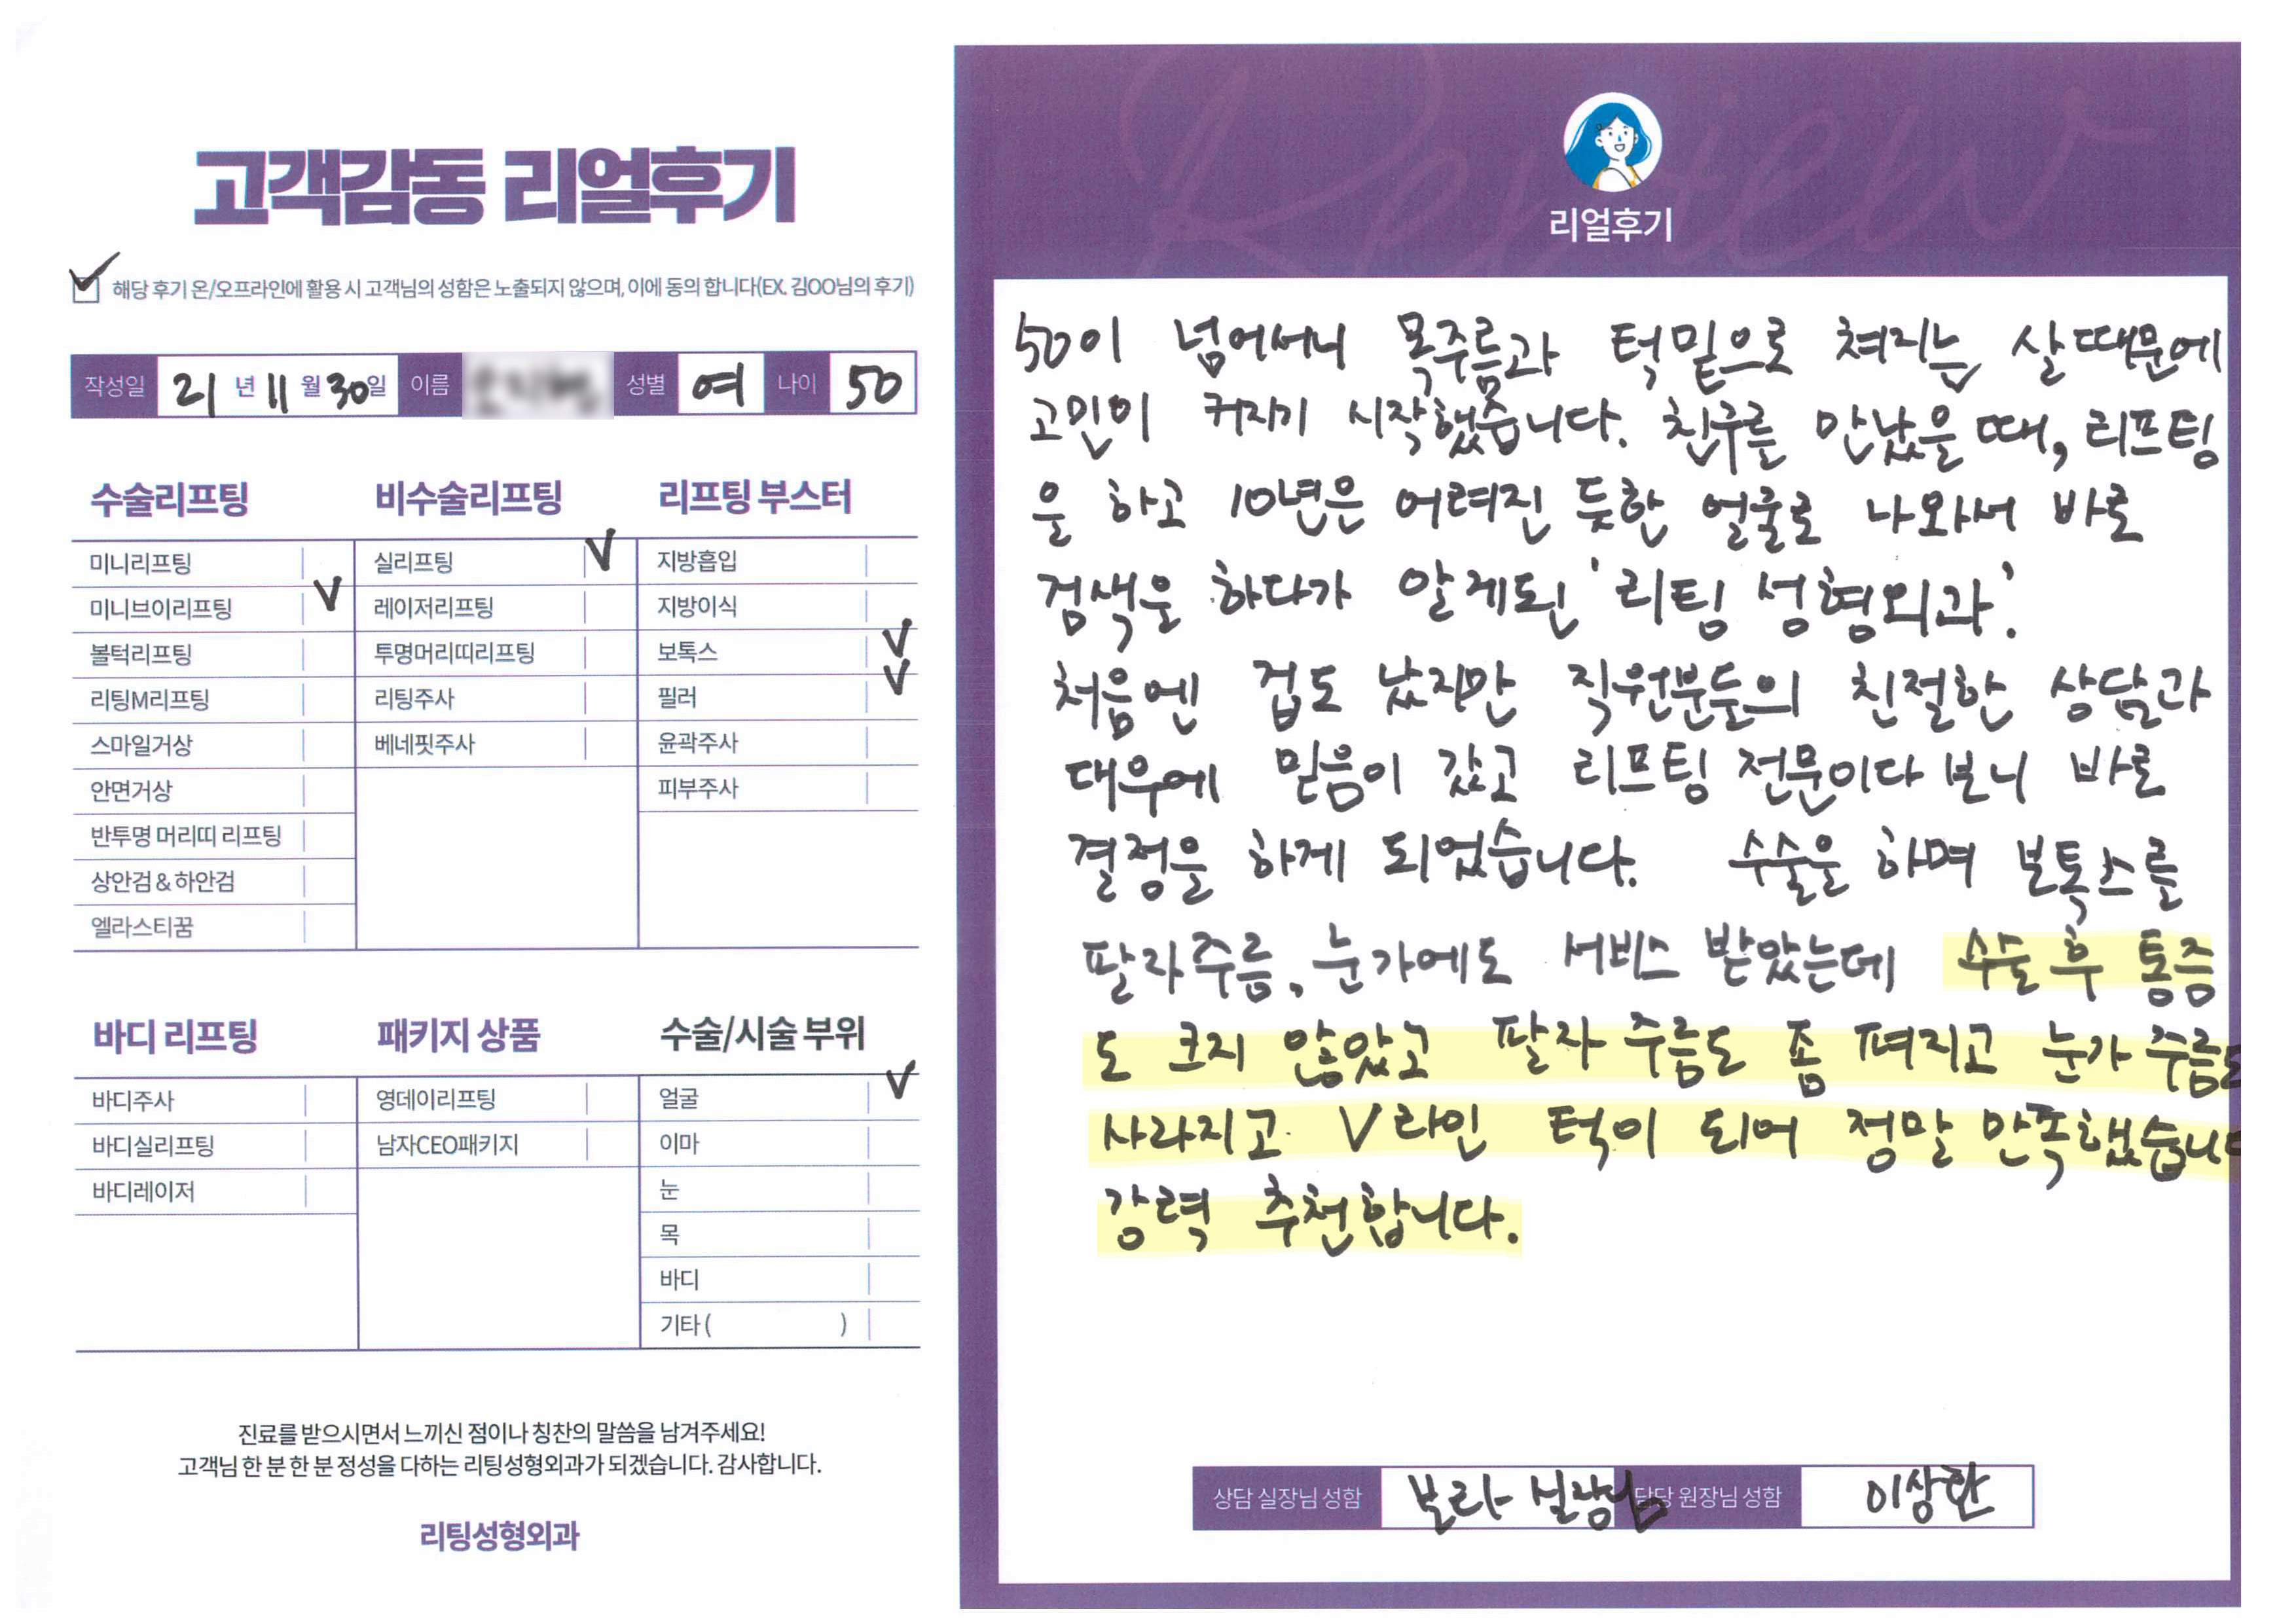 고객감동 리얼후기
✓ 해당 후기 온/오프라인에 활용 시 고객님의 성함은 노출되지 않으며, 이에 동의 합니다(EX. 김OO님의 후기)
작성일 21 년 11 월 30일 이름 성별 여 나이 50
수술리프팅 비수술리프팅 리프팅 부스터
미니리프팅 실리프팅 V 지방흡입
미니브이리프팅 V 레이저리프팅 지방이식
볼턱리프팅 투명머리띠리프팅 보톡스 V
리팅M리프팅 리팅주사 필러 V
스마일거상 베네핏주사 윤곽주사
안면거상 피부주사
반투명 머리띠 리프팅
상안검 & 하안검
엘라스티꿈
바디 리프팅 패키지 상품 수술/시술 부위
바디주사 영데이리프팅 얼굴 V
바디실리프팅 남자CEO패키지 이마
바디레이저 눈
목
바디
기타 ( )
진료를 받으시면서 느끼신 점이나 칭찬의 말씀을 남겨주세요!
고객님 한 분 한 분 정성을 다하는 리팅성형외과가 되겠습니다. 감사합니다.
리팅성형외과
Review
리얼후기
50이 넘어서니 목주름과 턱밑으로 쳐지는 살때문에
고민이 커지기 시작했습니다. 친구를 만났을 때, 리프팅
을 하고 10년은 어려진 듯한 얼굴로 나와서 바로
검색을 하다가 알게된 '리팅 성형외과'.
처음엔 겁도 났지만 직원분들의 친절한 상담과
대우에 믿음이 갔고 리프팅 전문이다 보니 바로
결정을 하게 되었습니다. 수술을 하며 보톡스를
팔자주름, 눈가에도 서비스 받았는데 수술 후 통증
도 크지 않았고 팔자 주름도 좀 펴지고 눈가 주름도
사라지고 V라인 턱이 되어 정말 만족했습니다
강력 추천합니다.
상담 실장님 성함 보라 실장님 담당 원장님 성함 이상한